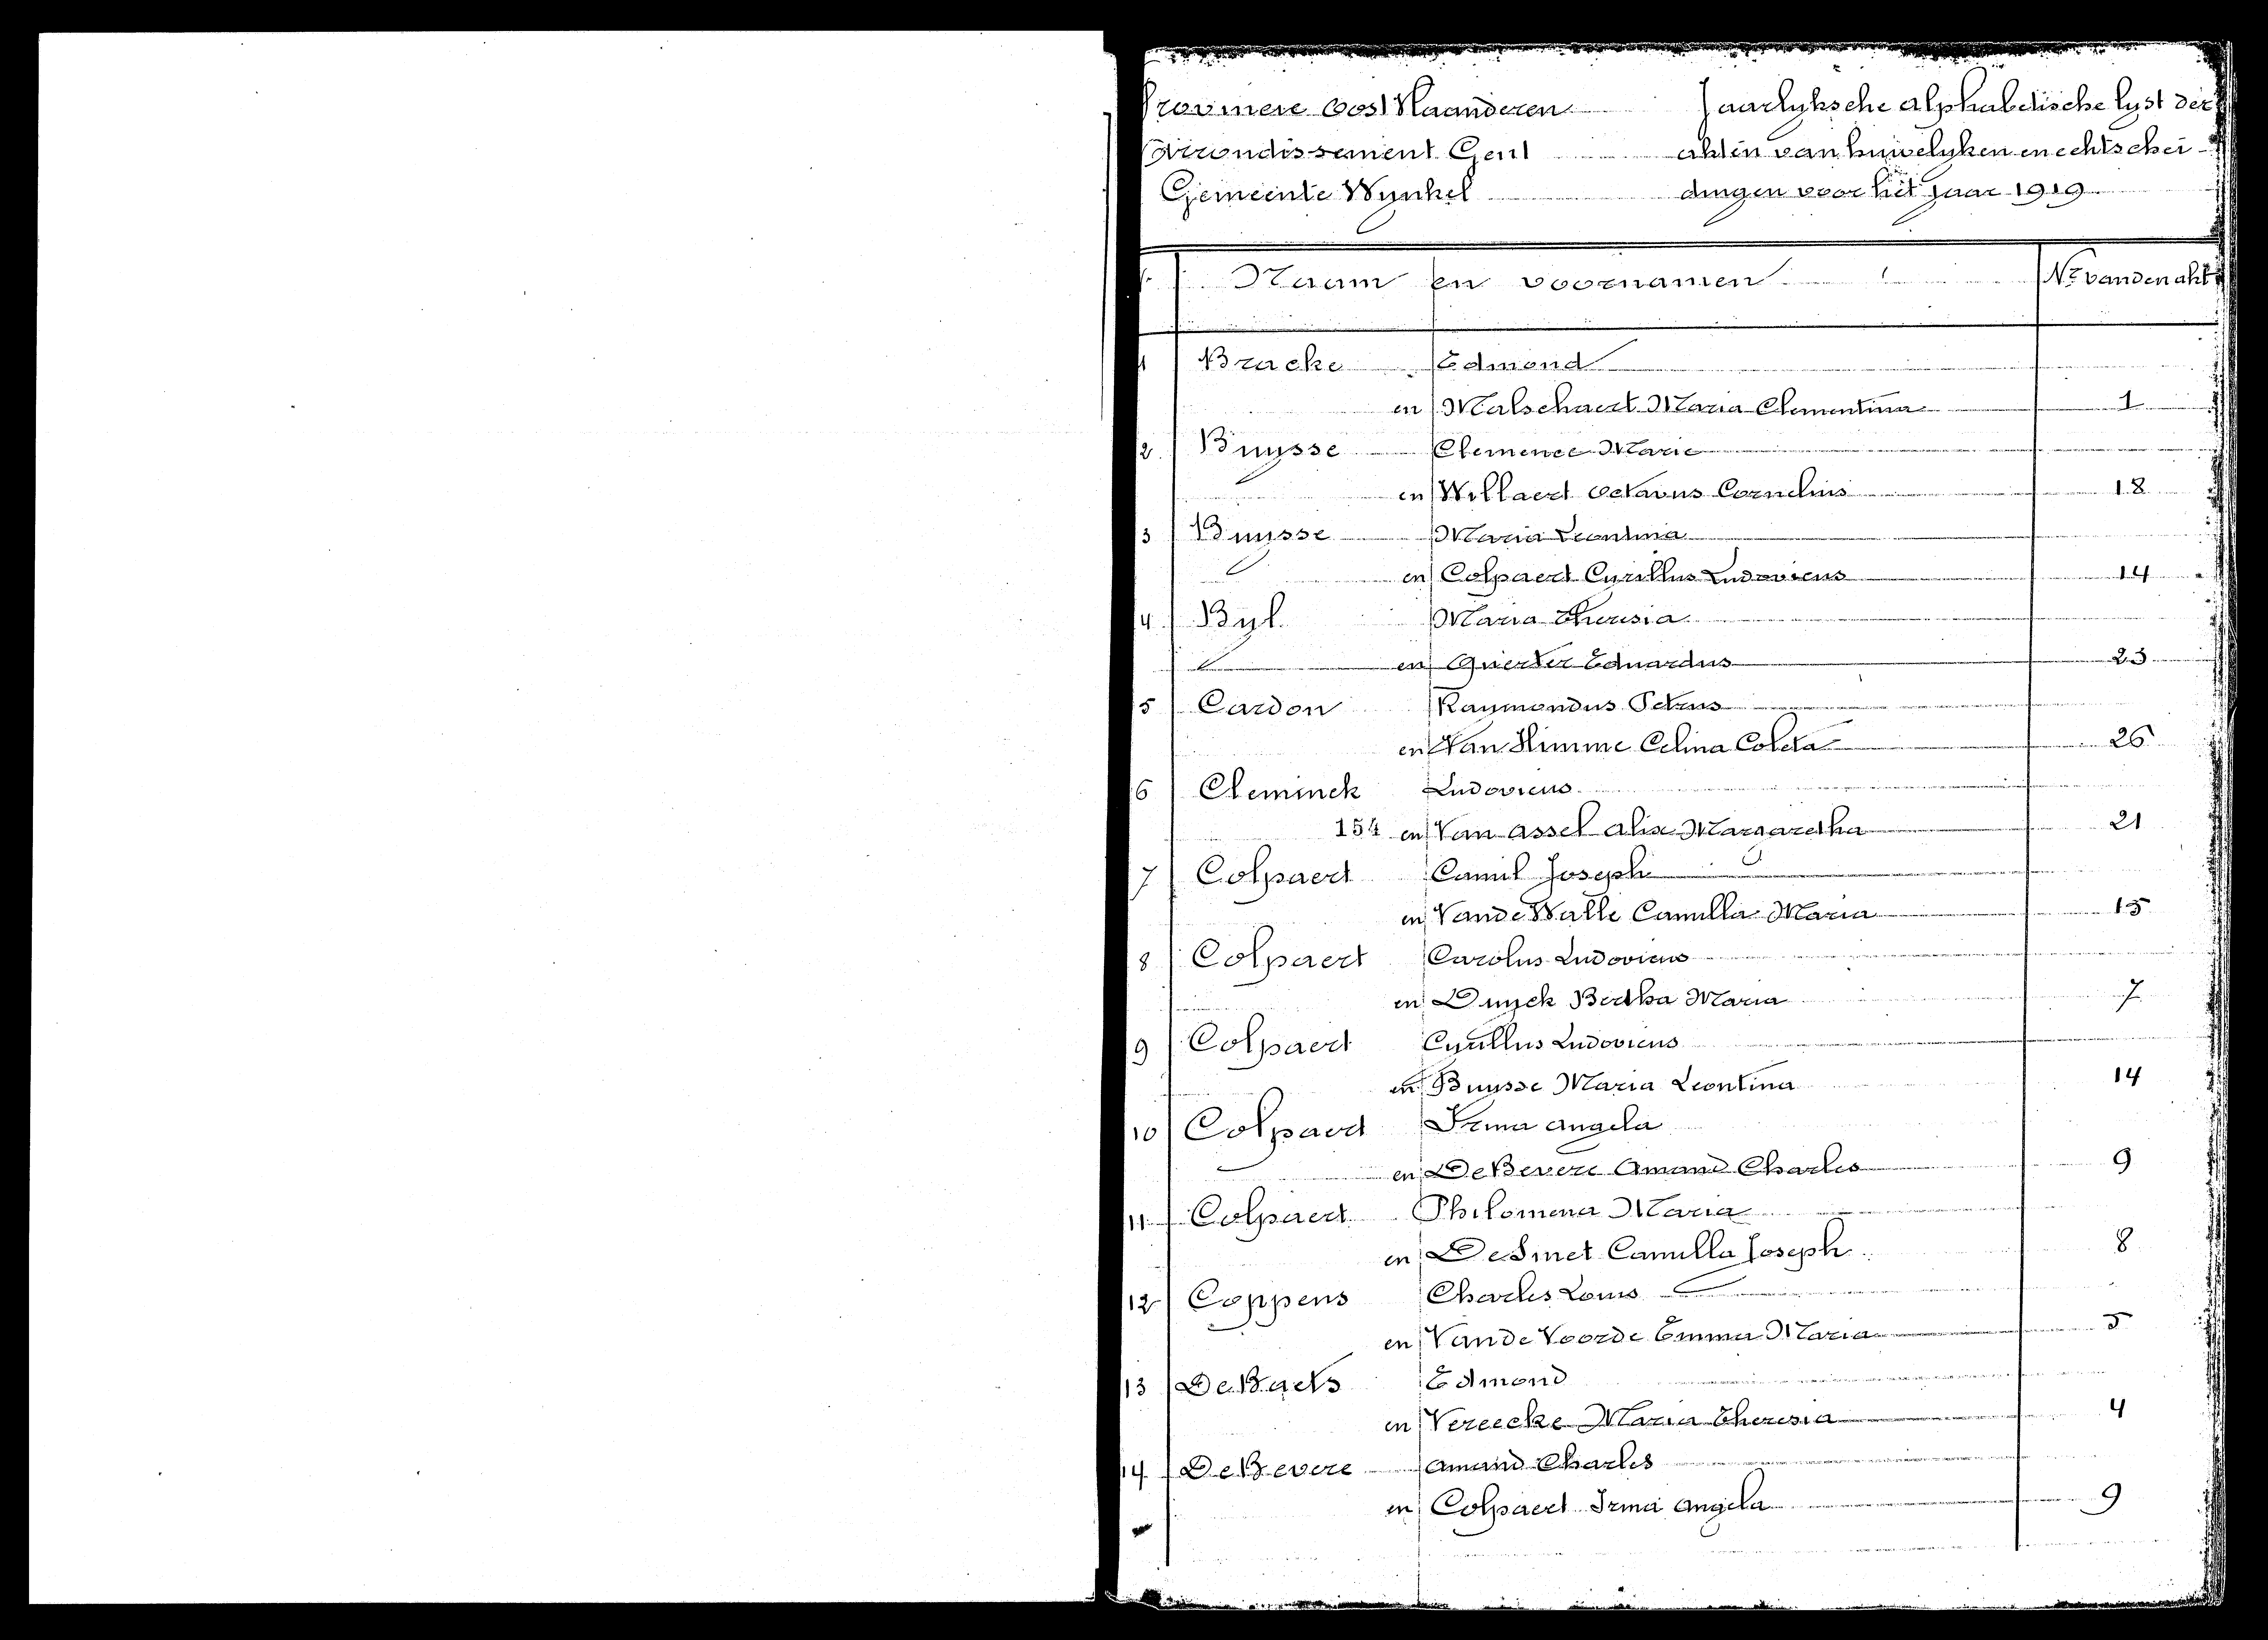 Provincie Oost Vlaanderen Jaarlyksche alphabetische lyst der
Arrondissement Gent akten van huwelyken en echtschei-
Gemeente Wynkel dingen voor het jaar 1919
Naam en voornamen Nr van den akt
1 Bracke Edmond
en Malschaert Maria Clementina 1
2 Buysse Clemence Marie
en Willaert Octavus Cornelius 18
3 Buysse Maria Leontina
en Colpaert Cyrillus Ludovicus 14
4 Byl Maria Theresia
en Quertier Eduardus 23
5 Cardon Raymondus Petrus
en Van Himme Celina Coleta 26
6 Cleminck Ludovicus
154 en Van Assel Alix Margaretha 21
7 Colpaert Camil Joseph
en Vande Walle Camilla Maria 15
8 Colpaert Carolus Ludovicus
en Duyck Bertha Maria 7
9 Colpaert Cyrillus Ludovicus
en Buysse Maria Leontina 14
10 Colpaert Irma Angela
en De Bevere Amand Charles 9
11 Colpaert Philomena Maria
en De Smet Camilla Joseph 8
12 Coppens Charles Louis
en Vande Voorde Emma Maria 5
13 De Baets Edmond
en Vereecke Maria Theresia 4
14 De Bevere Amand Charles
en Colpaert Irma Angela 9